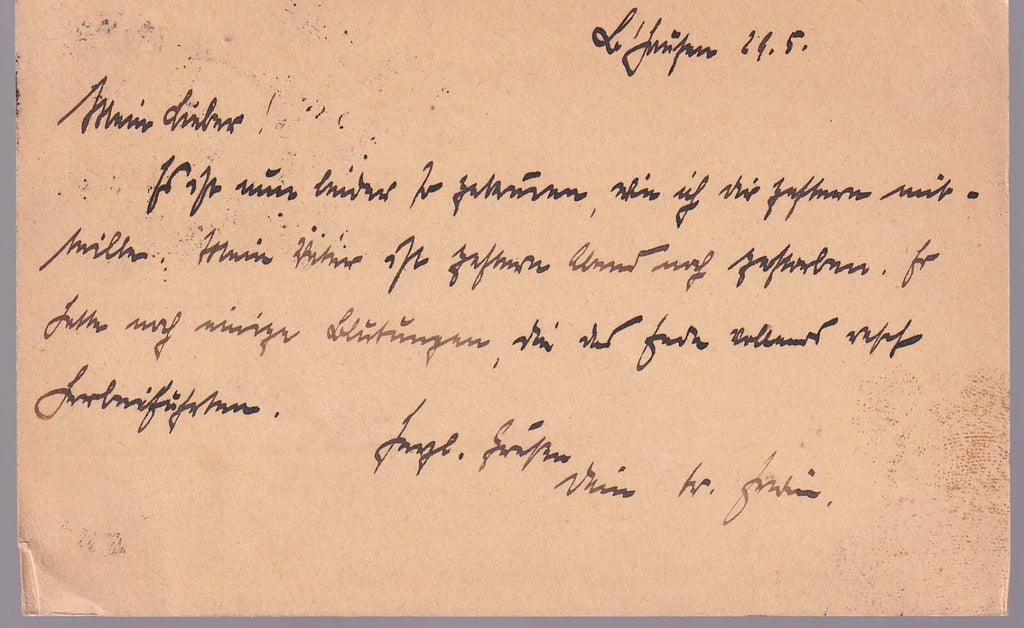 B'hausen 29.5.
Mein Lieber!
Es ist nun leider so gekommen, wie ich dir gestern mit-
teilte. Mein Vater ist gestern Abend noch gestorben. Er
hatte noch einige Blutungen, die das Ende vollends rasch
herbeiführten.
Herzl. Grüßen
Dein tr. Erwin.